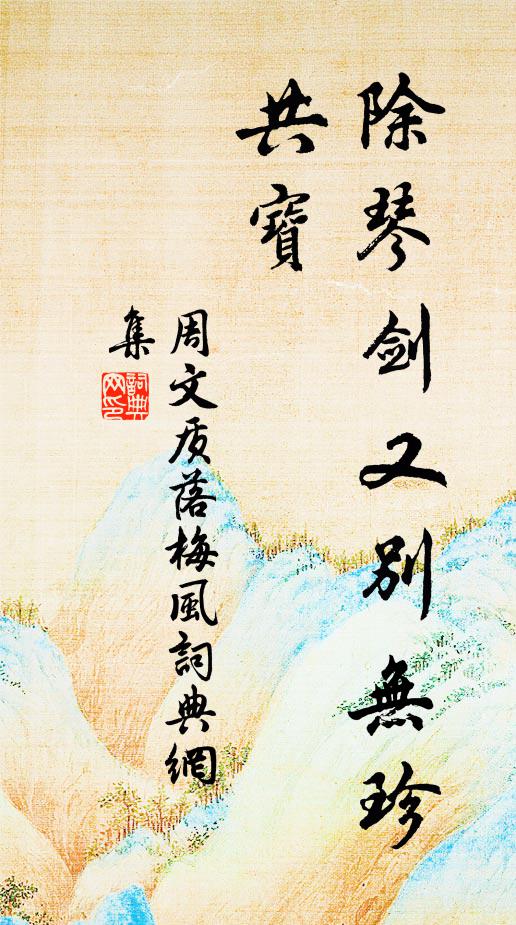 除琴剑又别無珍
共寶
周文质落梅風詞典網
集
詞典
网印